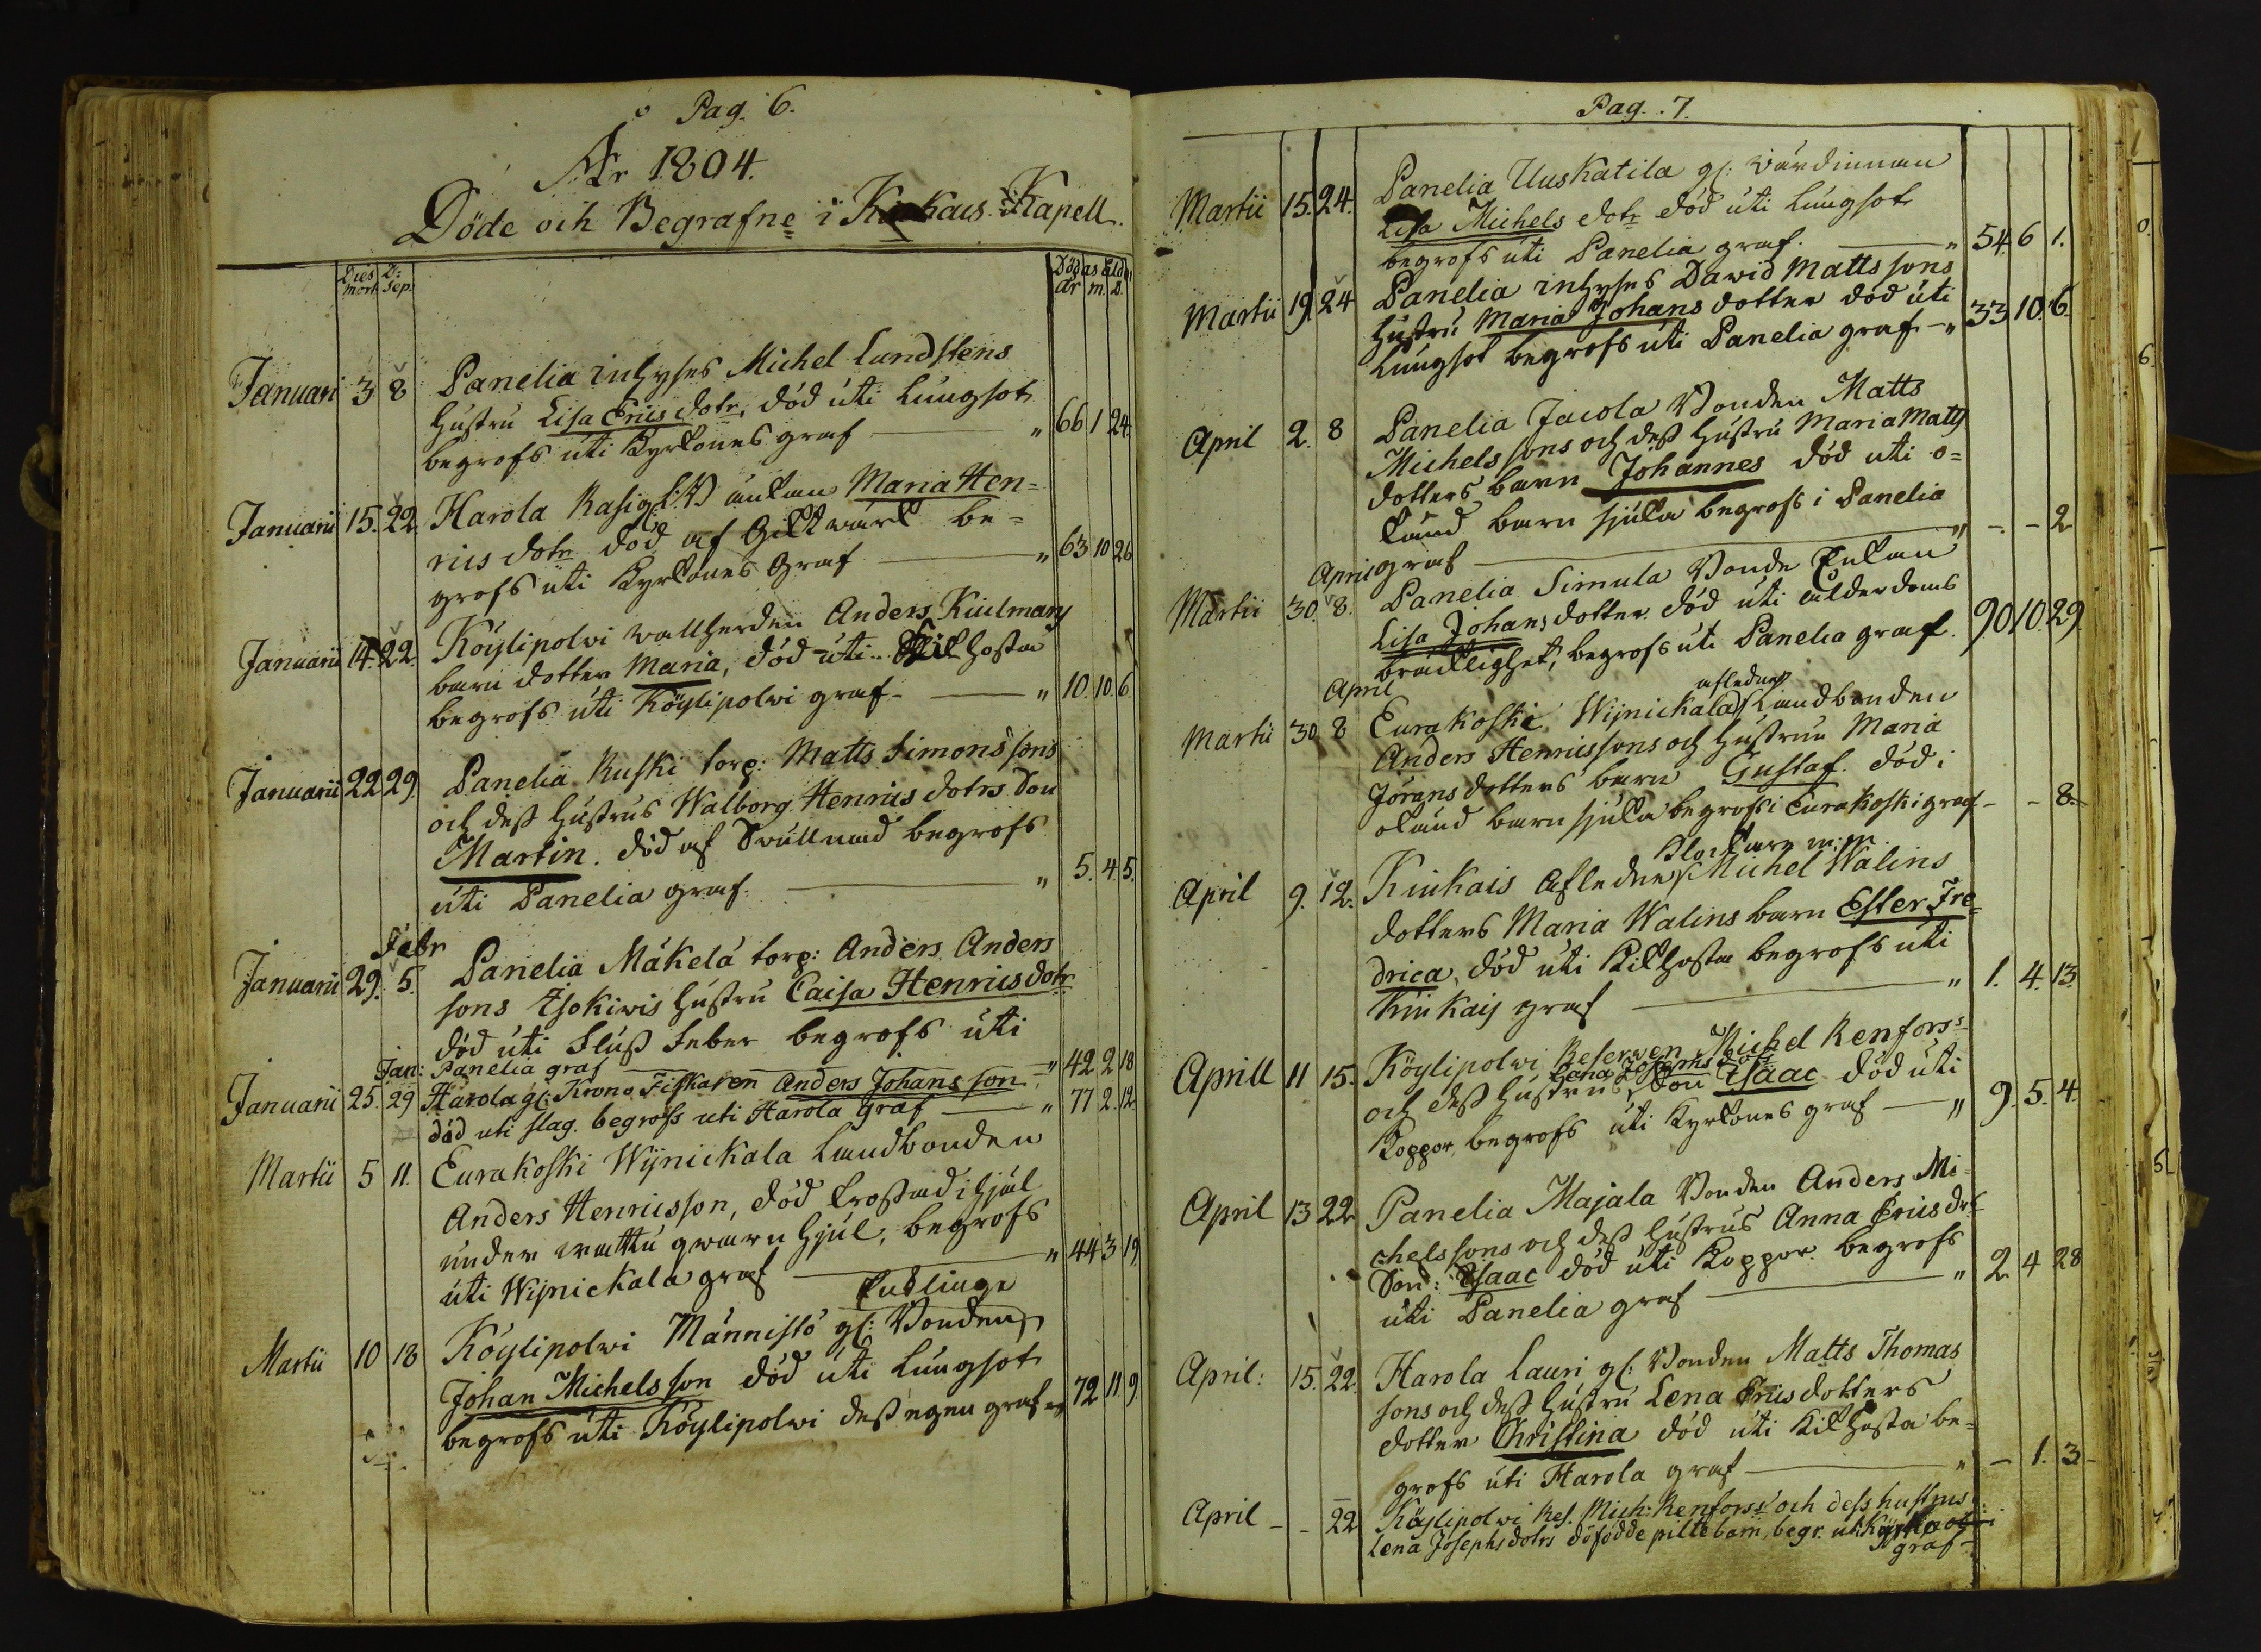 Pag. 6.
År 1804.
Döde och Begrafne i Kiukais Kapell.
Dies mort. D: Sep. Dödas Åld
år m. d.
Januari 3 8 Panelia inhyses Michel Lundstens
hustru Lisa Erics dotr, död uti Lungsot
begrofs uti Kyrkones graf " 66 1 24.
Januarii 15. 22. Harola Rasi gl: enkan Maria Hen=
rics dotr död af Giktwärk be=
grofs uti Kyrkones Graf " 63 10 26
Januarii 14. 22. Köylipolwi wallherden Anders Kiulmans
barn dotter Maria, död uti Kikhosta
begrofs uti Köylipolwi graf. " 10. 10. 6
Januarii 22 29. Panelia Ruski torp: Matts Simons sons
och dess hustrus Walborg Henrics dotrs Son
Martin. död af Swullnad begrofs
uti Panelia graf. " 5. 4. 5.
Febr
Januarii 29. 5. Panelia Mäkelä torp: Anders Anders
sons Isokiwis hustru Caisa Henrics dotr
död uti Fluss Feber begrofs uti
Jan: Panelia graf " 42 2 18
Januarii 25. 29 Harola gl: Krono Fiskaren Anders Johans son
död uti slag. begrofs uti Harola Graf " 77 2. 12.
Martii 5 11. Eurakoski Wijnickala Landbonden
Anders Henricsson, död krossad ihjäl
under wattu qwarn hjul, begrofs
uti Wijnickala graf " 44 3 19.
Enklinge
Martii 10 18 Köylipolwi Männistö gl: Bonden
Johan Michels son död uti Lungsot
begrofs uti Köylipolwi dess egen graf 72 11 9.
Pag. 7.
Martii 15. 24. Panelia Uuskatila gl: wärdinnan
Lisa Michels dotr död uti Lungsot
begrofs uti Panelia graf. " 54. 6 1.
Martii 19. 24 Panelia inhyses Dawid Matts sons
hustru Maria Johans dotter död uti
Lungsot begrofs uti Panelia graf " 33 10. 6.
April 2. 8 Panelia Jacola Bonden Matts
Michels sons och dess hustru Maria Matts
dotters barn Johannes död uti o=
känd barn sjuka begrofs i Panelia
graf " - - 2
April
Martii 30. 8. Panelia Simula Bonde Enkan
Lisa Johans dotter död uti alderdoms
bräcklighet, begrofs uti Panelia graf. 90 10. 29.
April
afledne
Martii 30 8 Eurakoski Wijnickala Landbonden
Anders Henricssons och hustrun Maria
Jörans dotters barn Gustaf. död i
okänd barn sjuka begrofs i Eurakoski graf - - 8.
Klockarn
April 9. 12. Kiukais afledne Michel Walins
dotters Maria Walins barn Ester Fre=
drica, död uti Kikhosta begrofs uti
Kiukais graf " 1. 4. 13.
Aprill 11 15. Köylipolwi Reserwen Michel Renfors:s
Lena Josephs dotr
och dess hustrus Son Isaac död uti
Koppor, begrofs uti Kyrkones graf " 9. 5. 4.
April 13 22 Panelia Majala Bonden Anders Mi=
chels sons och dess hustrus Anna Erics drs
Son: Isaac död uti Koppor begrofs
uti Panelia graf " 2 4 28
April: 15. 22. Harola Lauri gl: Bonden Matts Thomas
sons och dess hustru Lena Erics dotters
dotter Christina död uti Kikhosta be=
grofs uti Harola graf " - 1. 3
April - - 22 Köylipolwi Res. Mich: Renforss och dess hustrus
Lena Josephs dotrs dödfödde piltebarn, begr. uti
graf